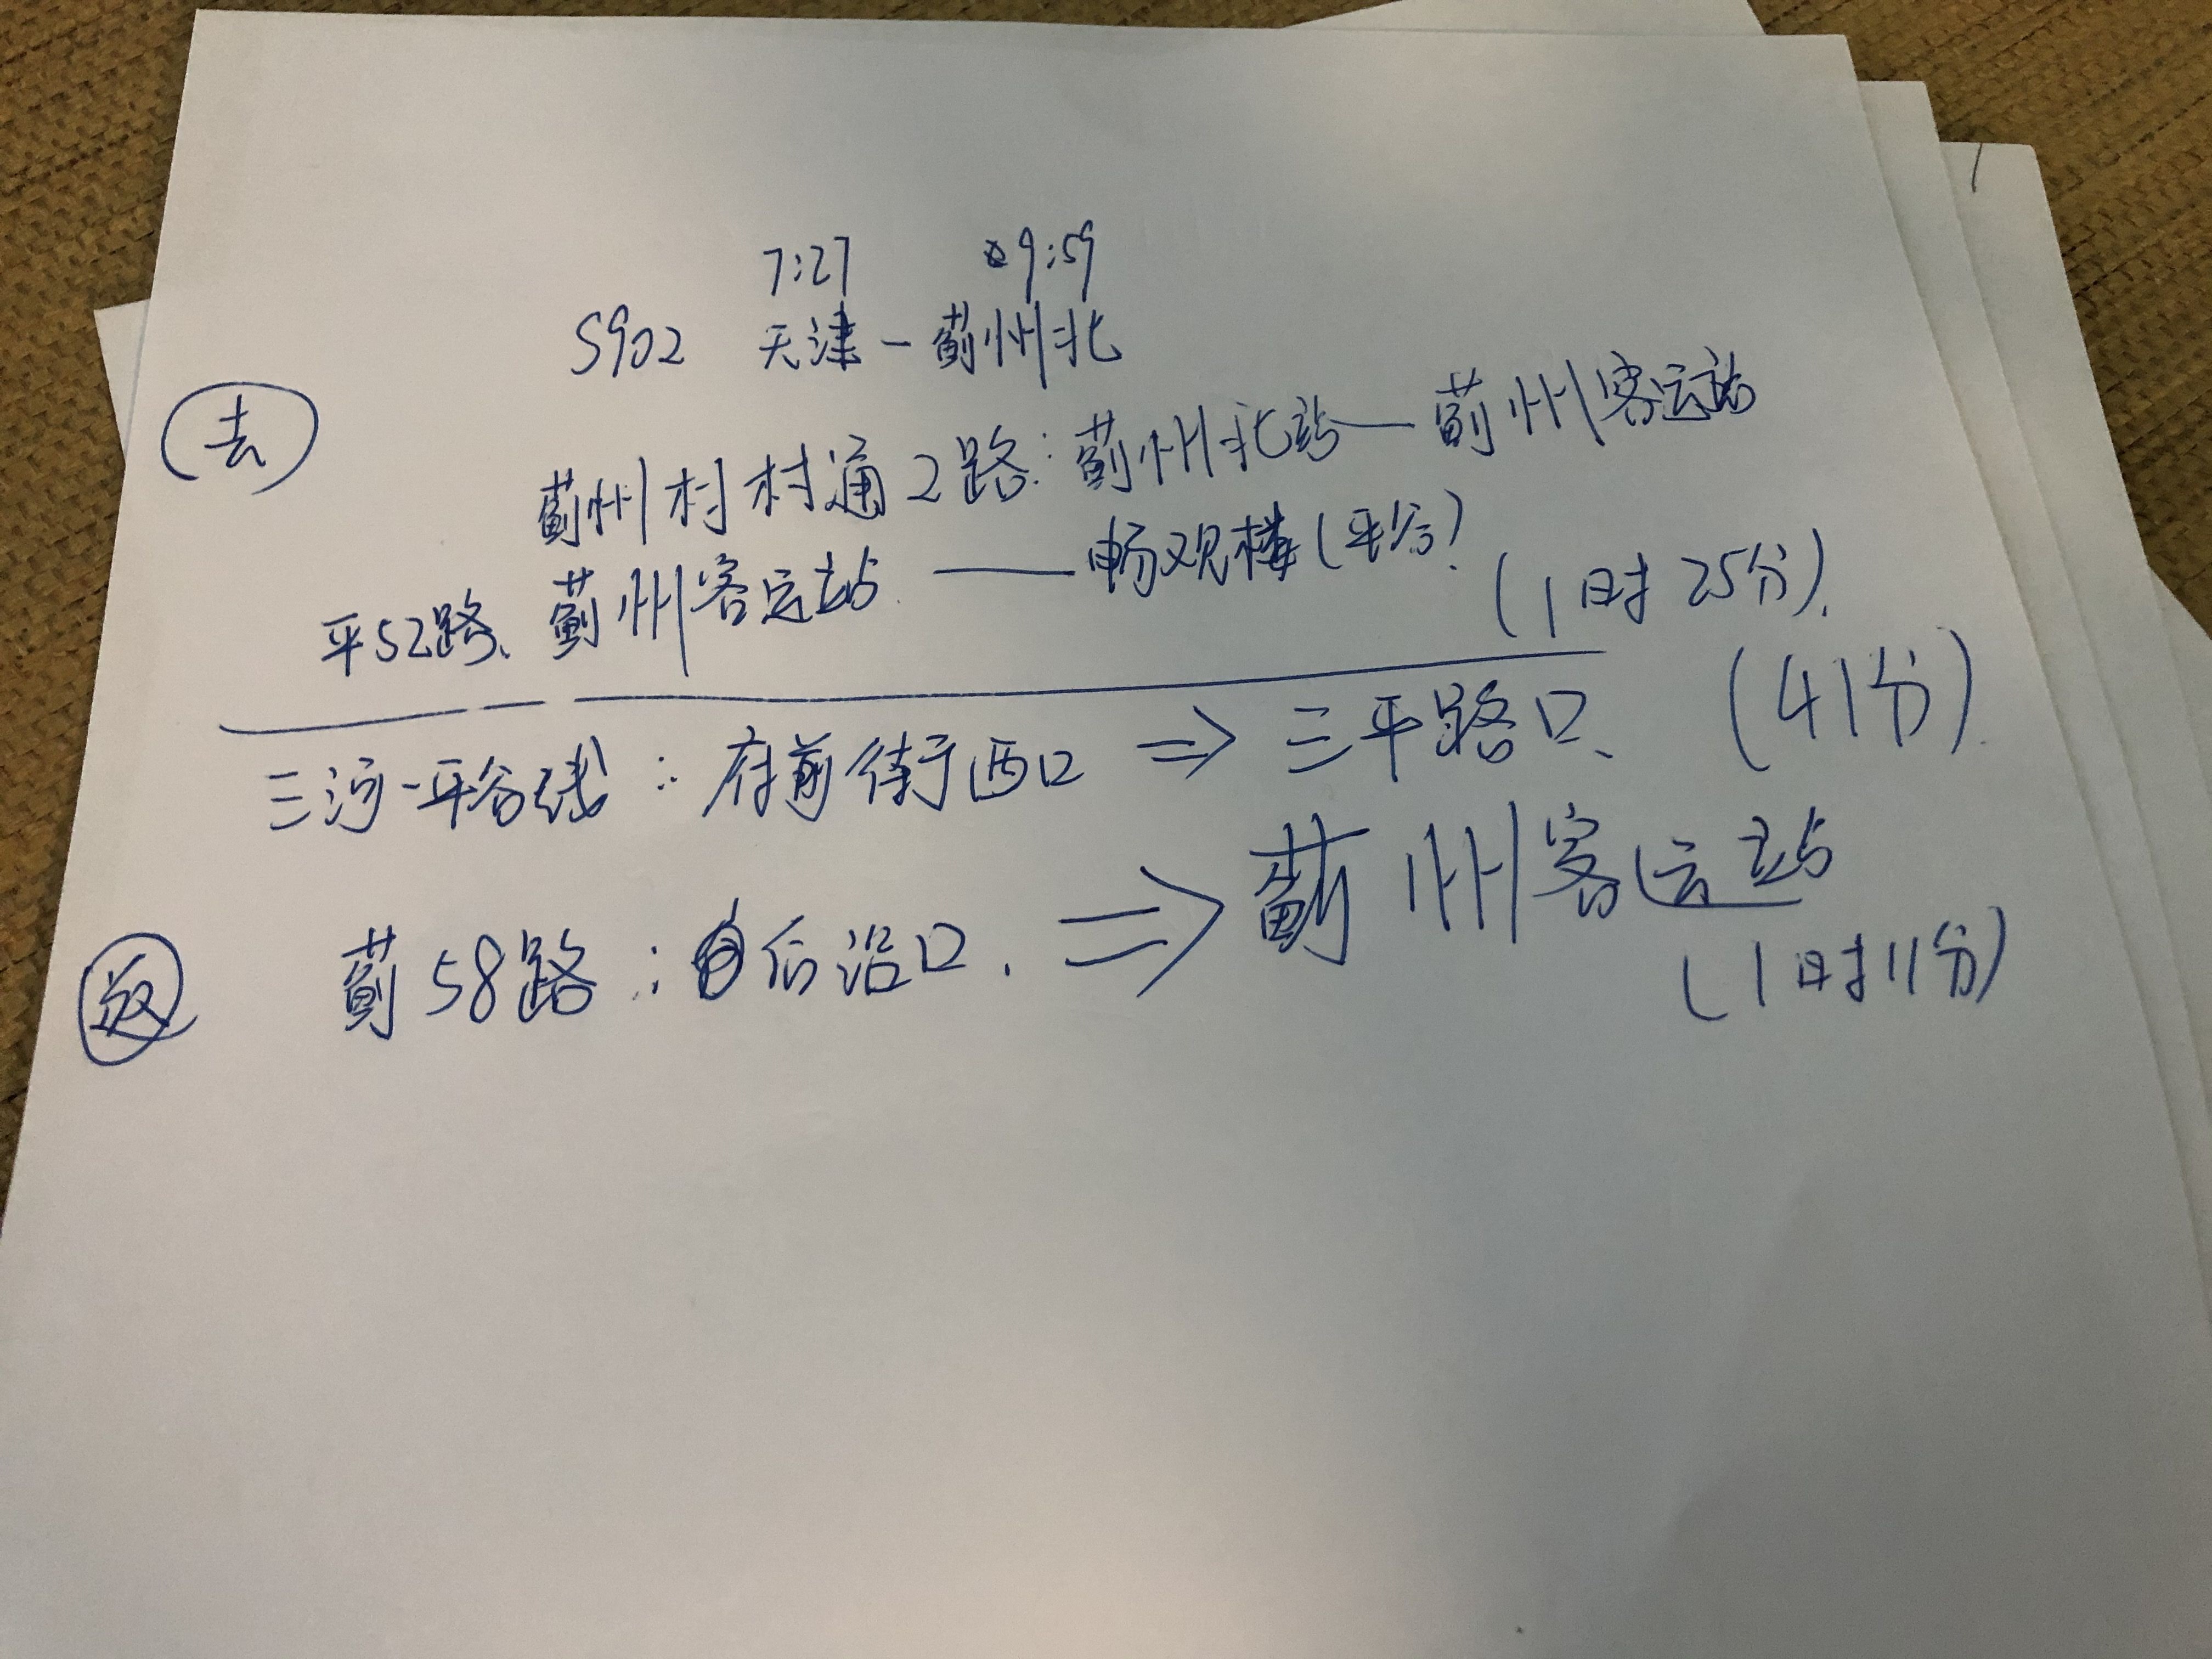 7:27 9:59
S902 天津-蓟州北
去
蓟州村村通2路:蓟州北站—蓟州客运站
平52路、蓟州客运站——畅观楼(平谷)
(1时25分).
三河-平谷线:府前街西口⇒三平路口、(41分).
返
蓟58路:后沿口.⇒蓟州客运站
(1时11分)